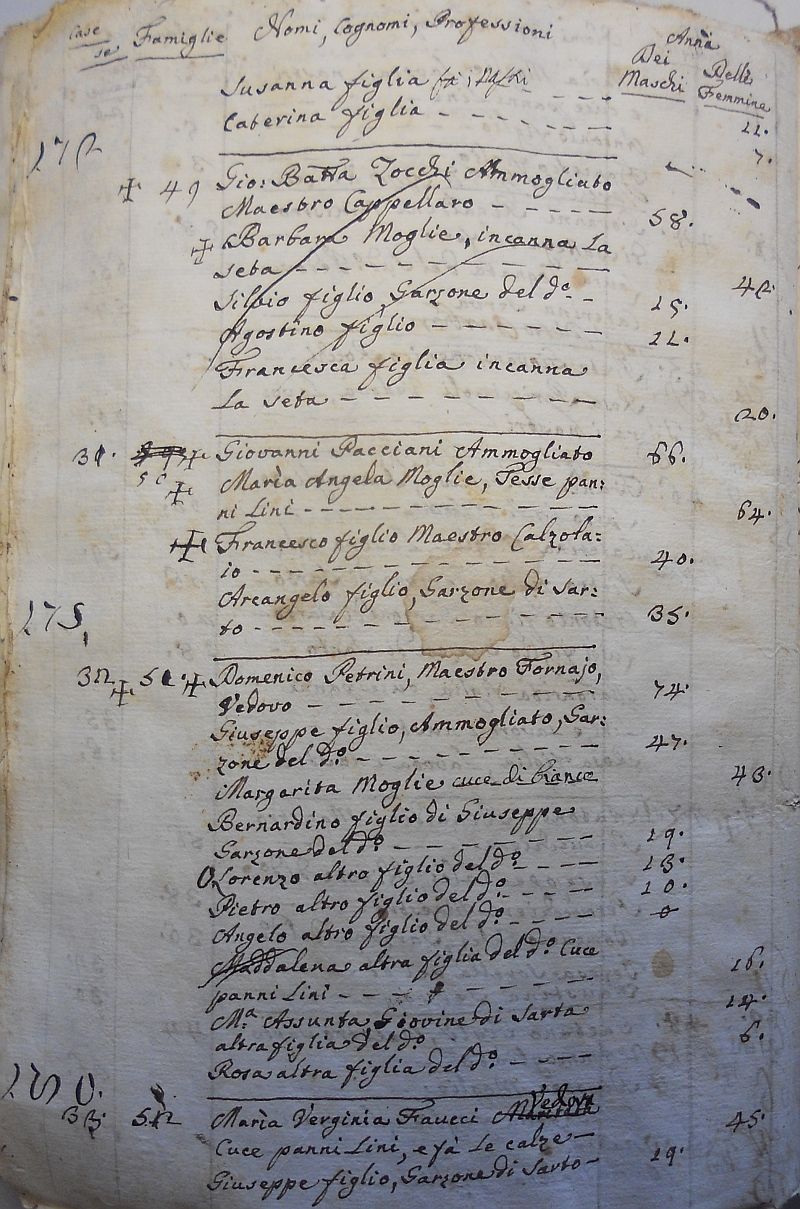 Case Famiglie Nomi, Cognomi, Professioni Anni
se Dei Delle
Maschi Femmine
Susanna figlia
11.
Caterina figlia
7.
172
49 Gio: Batta Zocchi Ammogliato
Maestro Cappellaro 58.
Barbara Moglie, incanna La
seta 42.
Silvio figlio, Garzone del do. 15.
Agostino figlio 11.
Francesca figlia incanna
La seta 20.
31. 50 Giovanni Pacciani Ammogliato 66.
Marìa Angela Moglie, Tesse pan:
ni Lini 64.
Francesco figlio Maestro Calzola:
io 40.
Arcangelo figlio, Garzone di Sar:
to 35.
175
32 51. Domenico Petrini, Maestro Fornajo,
Vedovo 74.
Giuseppe figlio, Ammogliato, Gar:
zone del do. 47.
Margarita Moglie cuce di bianco 43.
Bernardino figlio di Giuseppe
Garzone del do. 19.
Lorenzo altro figlio del do. 13.
Pietro altro figlio del do. 10.
Angelo altro figlio del do.
Maddalena altra figlia del do. Cuce
panni Lini 16.
Ma. Assunta Giovine di Sarta 14.
altra figlia del do.
Rosa altra figlia del do. 6.
180.
33. 52 Marìa Verginia Faucci Vedova 45.
Cuce panni Lini, e fà Le calze
Giuseppe figlio, Garzone di Sarto 19.